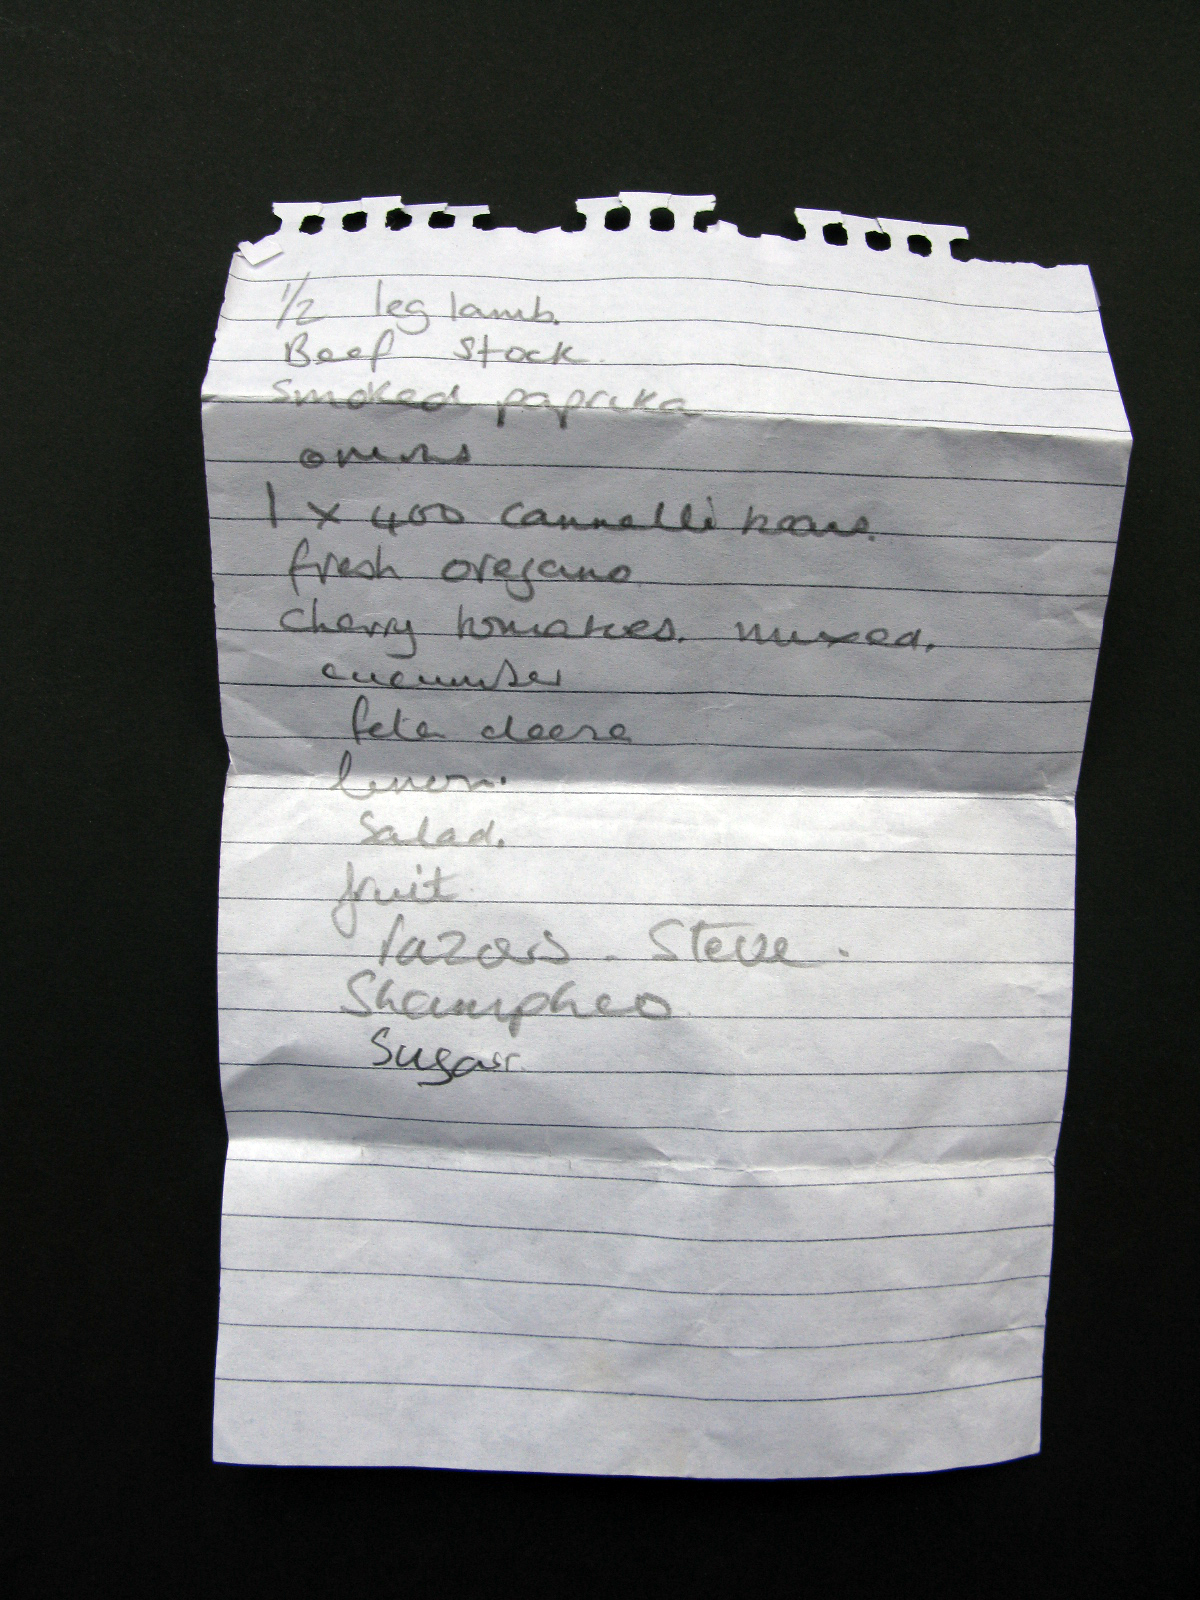 1/2 leg lamb.
Beef stock.
smoked paprika
onions
1 x 400 cannelli beans.
fresh oregano
cherry tomatoes. mixed.
cucumber
feta cheese
lemon.
Salad.
fruit
razors. Steve.
Shampheo
Sugar.